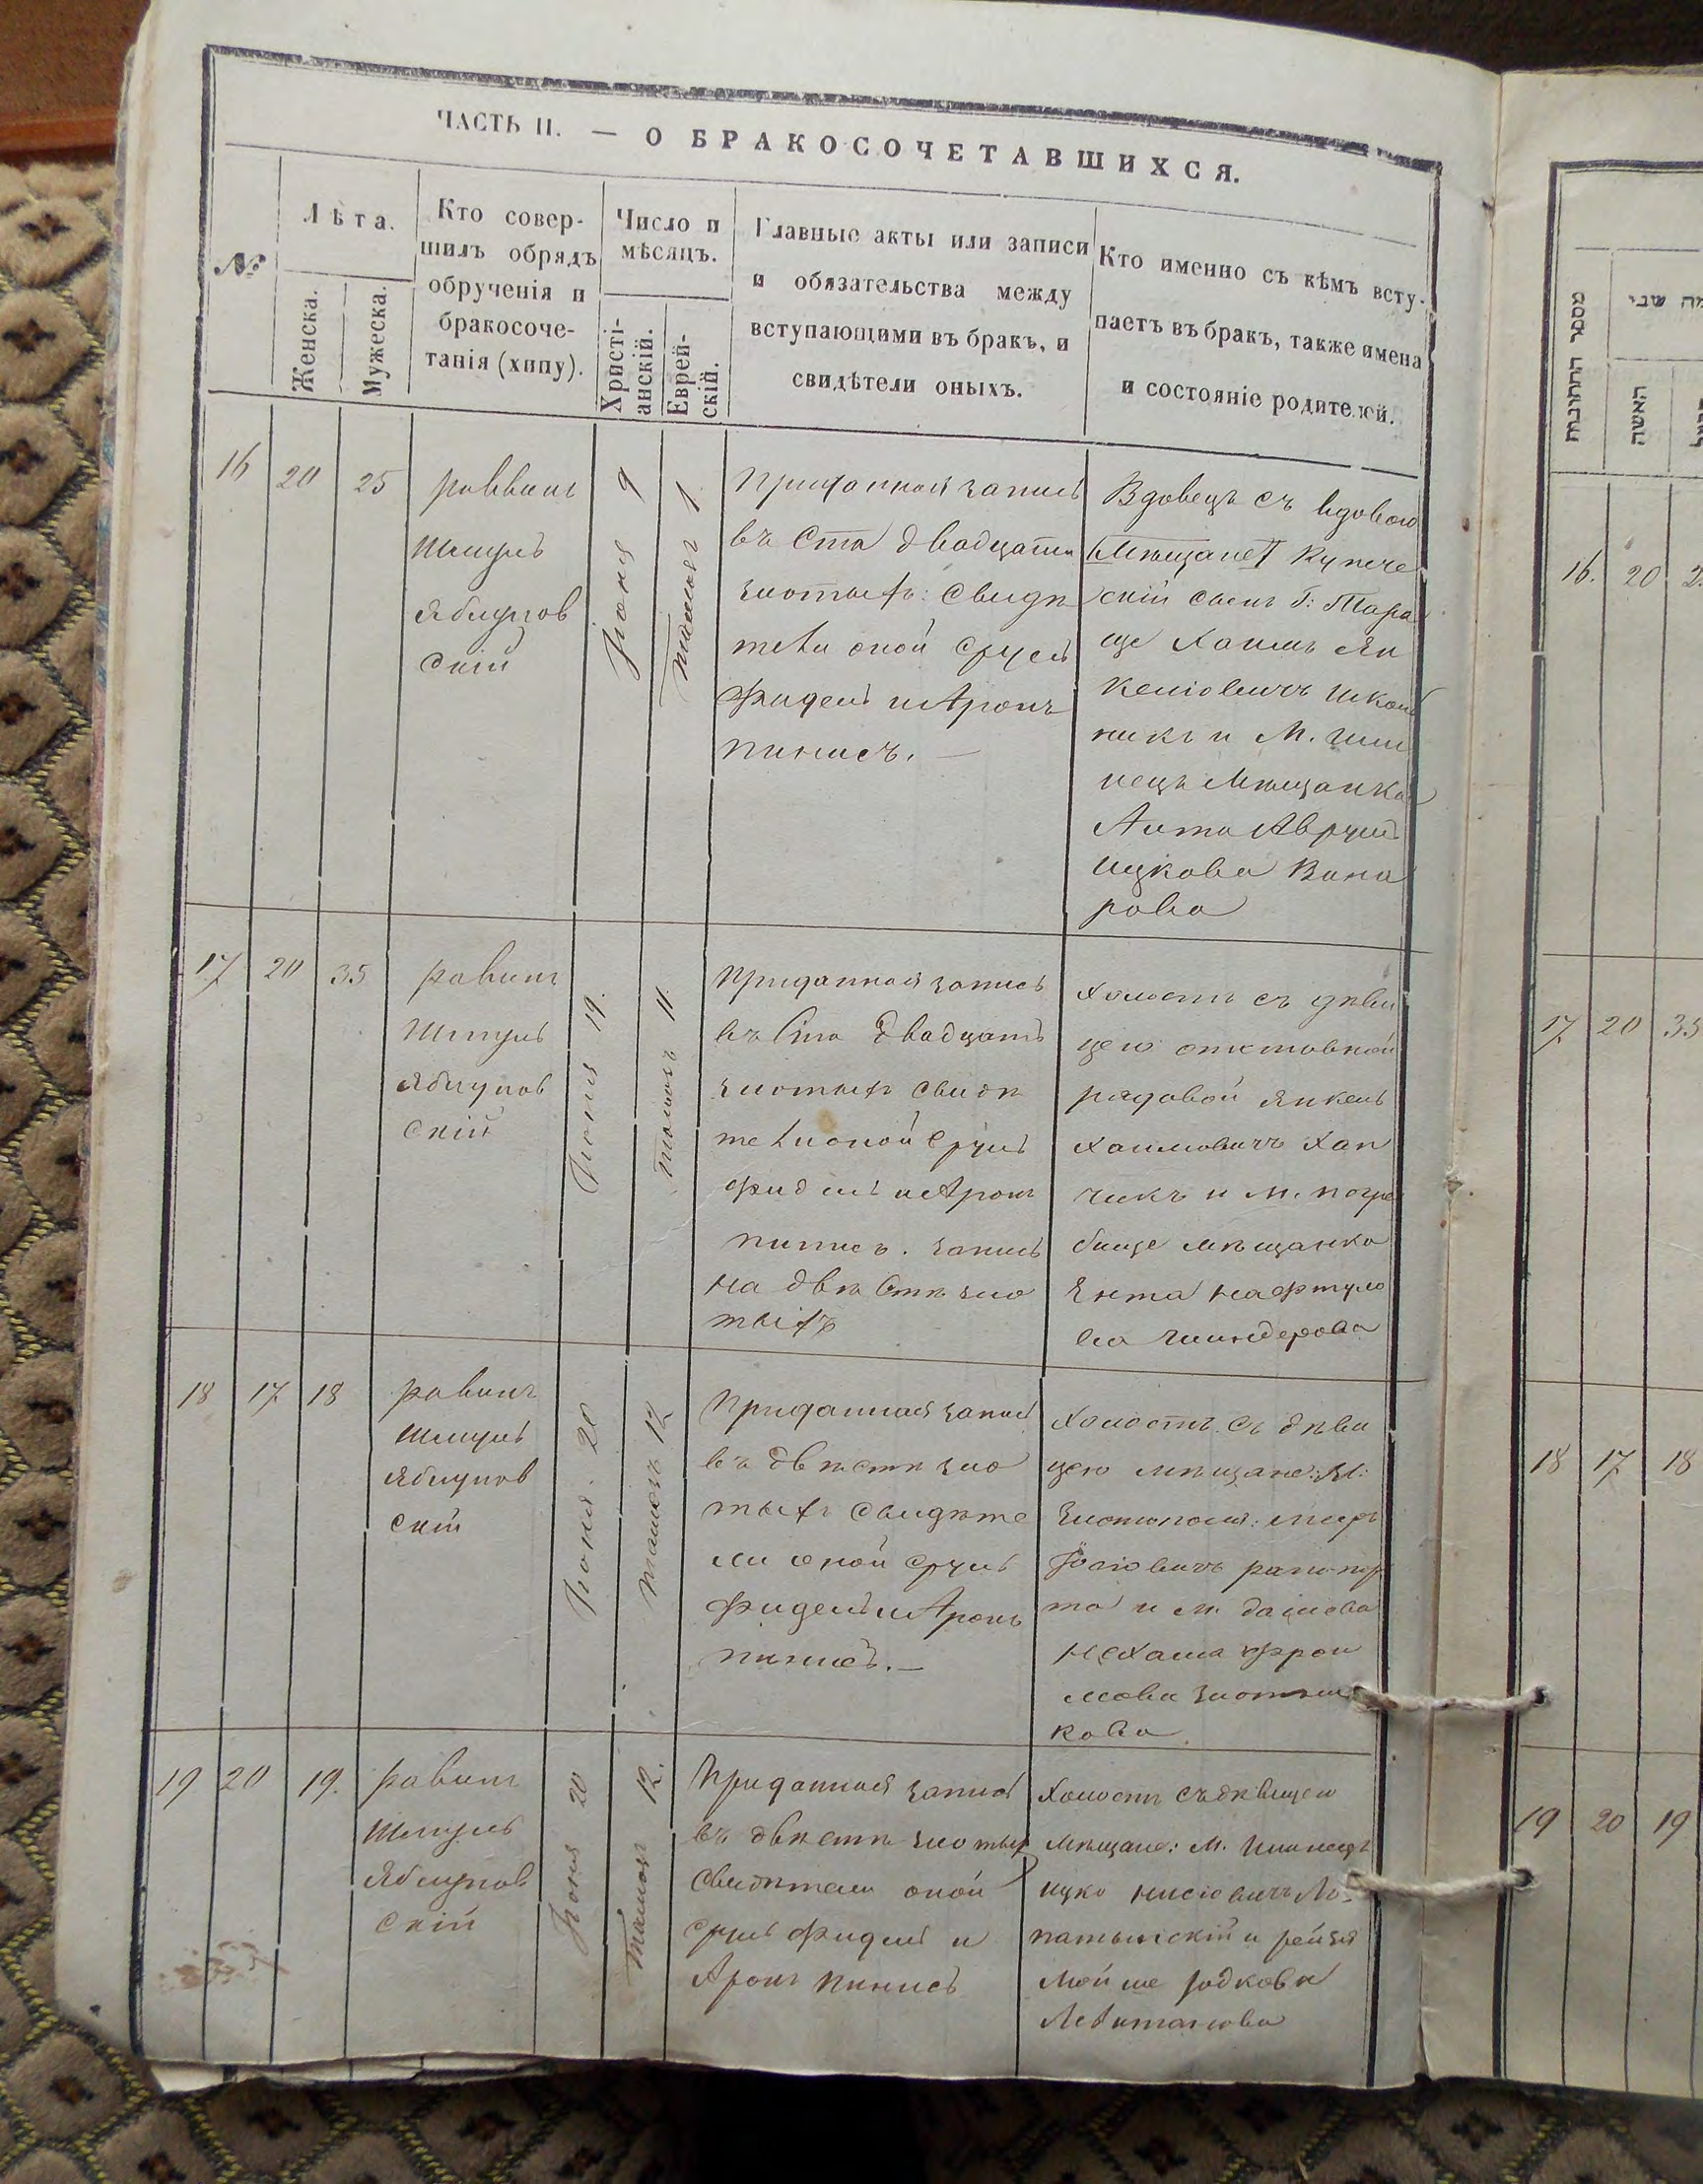 ЧАСТЬ II. — О БРАКОСОЧЕТАВШИХСЯ.
№
Лѣта.
Женска.
Мужеска.
Кто совер-
шилъ обрядъ
обрученія и
бракосоче-
танія (хипу).
Число и
мѣсяцъ.
Христі-
анскій.
Еврей-
скій.
Главные акты или записи
и обязательства между
вступающими въ бракъ, и
свидѣтели оныхъ.
Кто именно съ кѣмъ всту-
паетъ въ бракъ, также имена
и состояніе родителей.
16
20
25
раввинъ
Шмуль
Яблунов
скій
Іюня 9
Тамозъ 1
Приданная запись
въ Ста двадцати
злотыхъ: Свидѣ
тели оной Сруль
Фидель и Аронъ
Пинисъ. —
Вдовецъ съ вдовою
Мѣщане Купече
скій сынъ Г: Тара
ще Хаимъ Ян
келіовичъ Школь
никъ и М.
Мѣщанка
Аврум
Ицкова
рова
17
20
35
равинъ
Шмуль
Яблунов
скій
Іюня 19.
Тамозъ 11.
Приданная запись
въ Сто двадцать
злотыхъ Свидѣ
тели оной Сруль
Фидель и Аронъ
Пинисъ. запись
на двѣ Стѣ зло
тыхъ
Холостъ съ дѣви
цею отставной
рядовой Янкель
Хаимовичъ Хап
чикъ и М. Погре
бище мѣщанка
Ента Нафтуло
ва
18
17
18
равинъ
Шмуль
Яблунов
скій
Іюня 20
Тамозъ 12
Приданная запись
въ двѣсти зло
тыхъ Свидѣте
ли оной Сруль
Фидель и Аронъ
Пинисъ. —
Холостъ съ дѣви
цею мѣщане: М:
Рапопор
та и М. Дашова
Нехама Фрои
мова
кова
19
20
19.
равинъ
Шмуль
Яблунов
скій
Іюня 20
Тамозъ 12.
Приданная запись
въ двѣсти злотых
Свидѣтели оной
Сруль Фидель и
Аронъ Пинисъ
Холостъ съ дѣвицею
Мѣщане: М.
Ицко Нисіовичъ Ло-
патынскій и Рейзя
Мойше Юдкова
Левитанова
מספר החתונות
האשה
16.
20
17
20
35
18
17
18
19
20
19